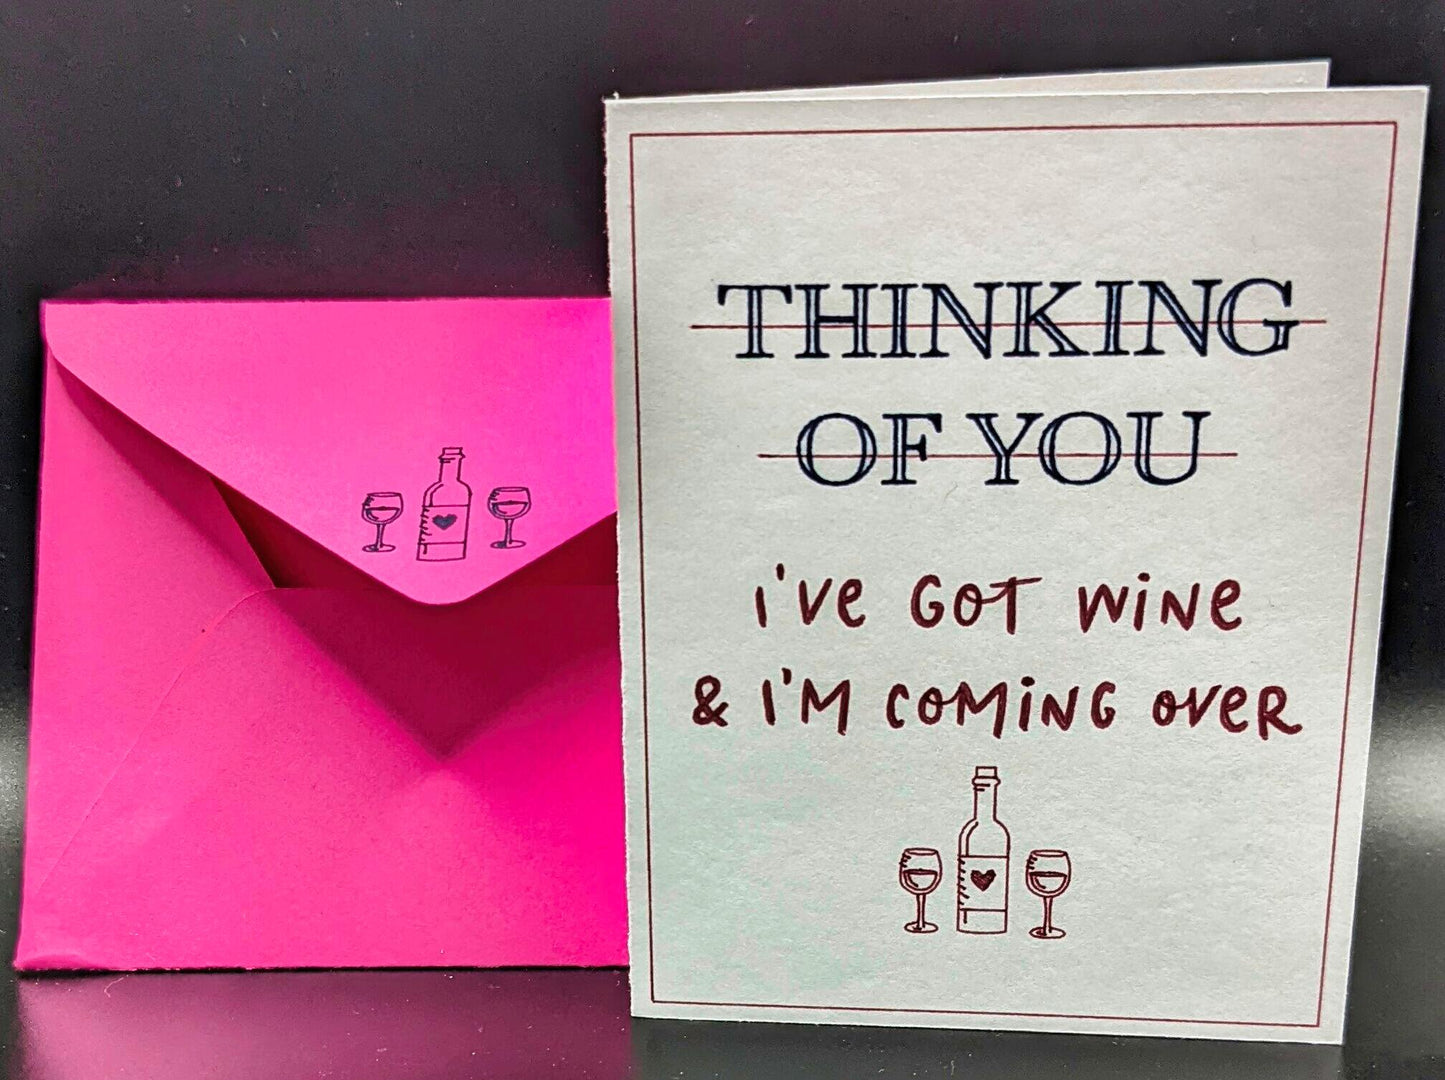 THINKING
OF YOU
i'VE GOT WiNE
& I'M COMiNG OVER